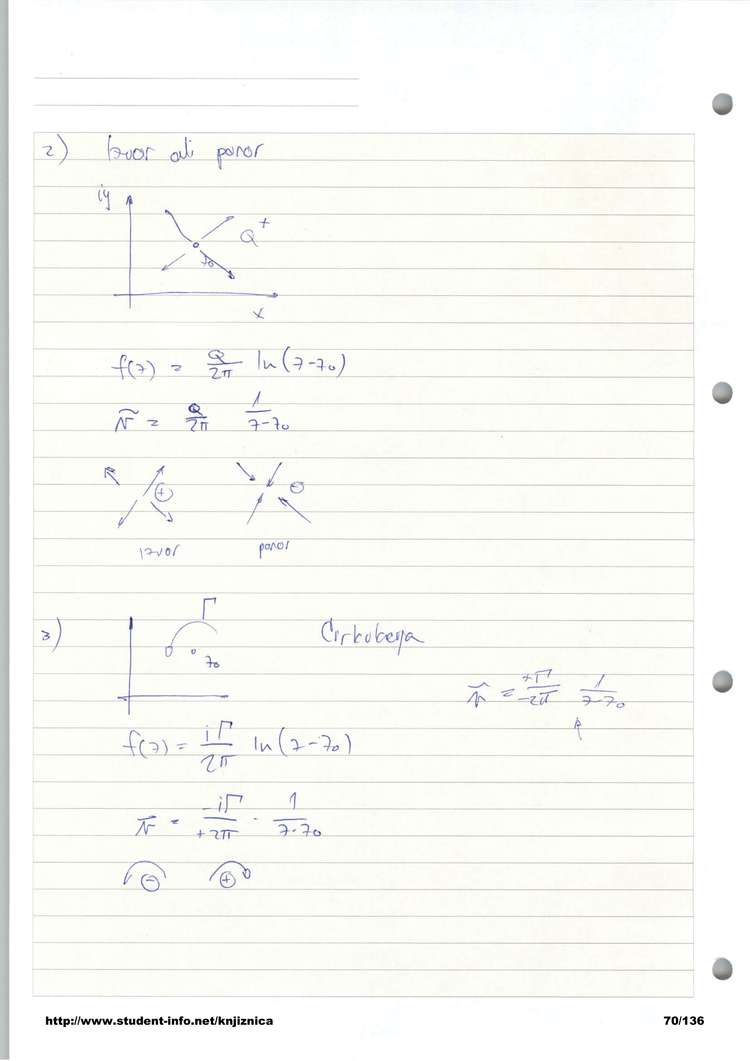 2) Izvor ali ponor
iy
Q+
z₀
x
f(z) = Q/2π ln(z-z₀)
ṽ = Q/2π 1/(z-z₀)
+
-
izvor
ponor
3)
Γ
z₀
ṽ = +Γ/-2π 1/(z-z₀)
f(z) = iΓ/2π ln(z-z₀)
v̄ = -iΓ/+2π · 1/(z-z₀)
- +
http://www.student-info.net/knjiznica
70/136